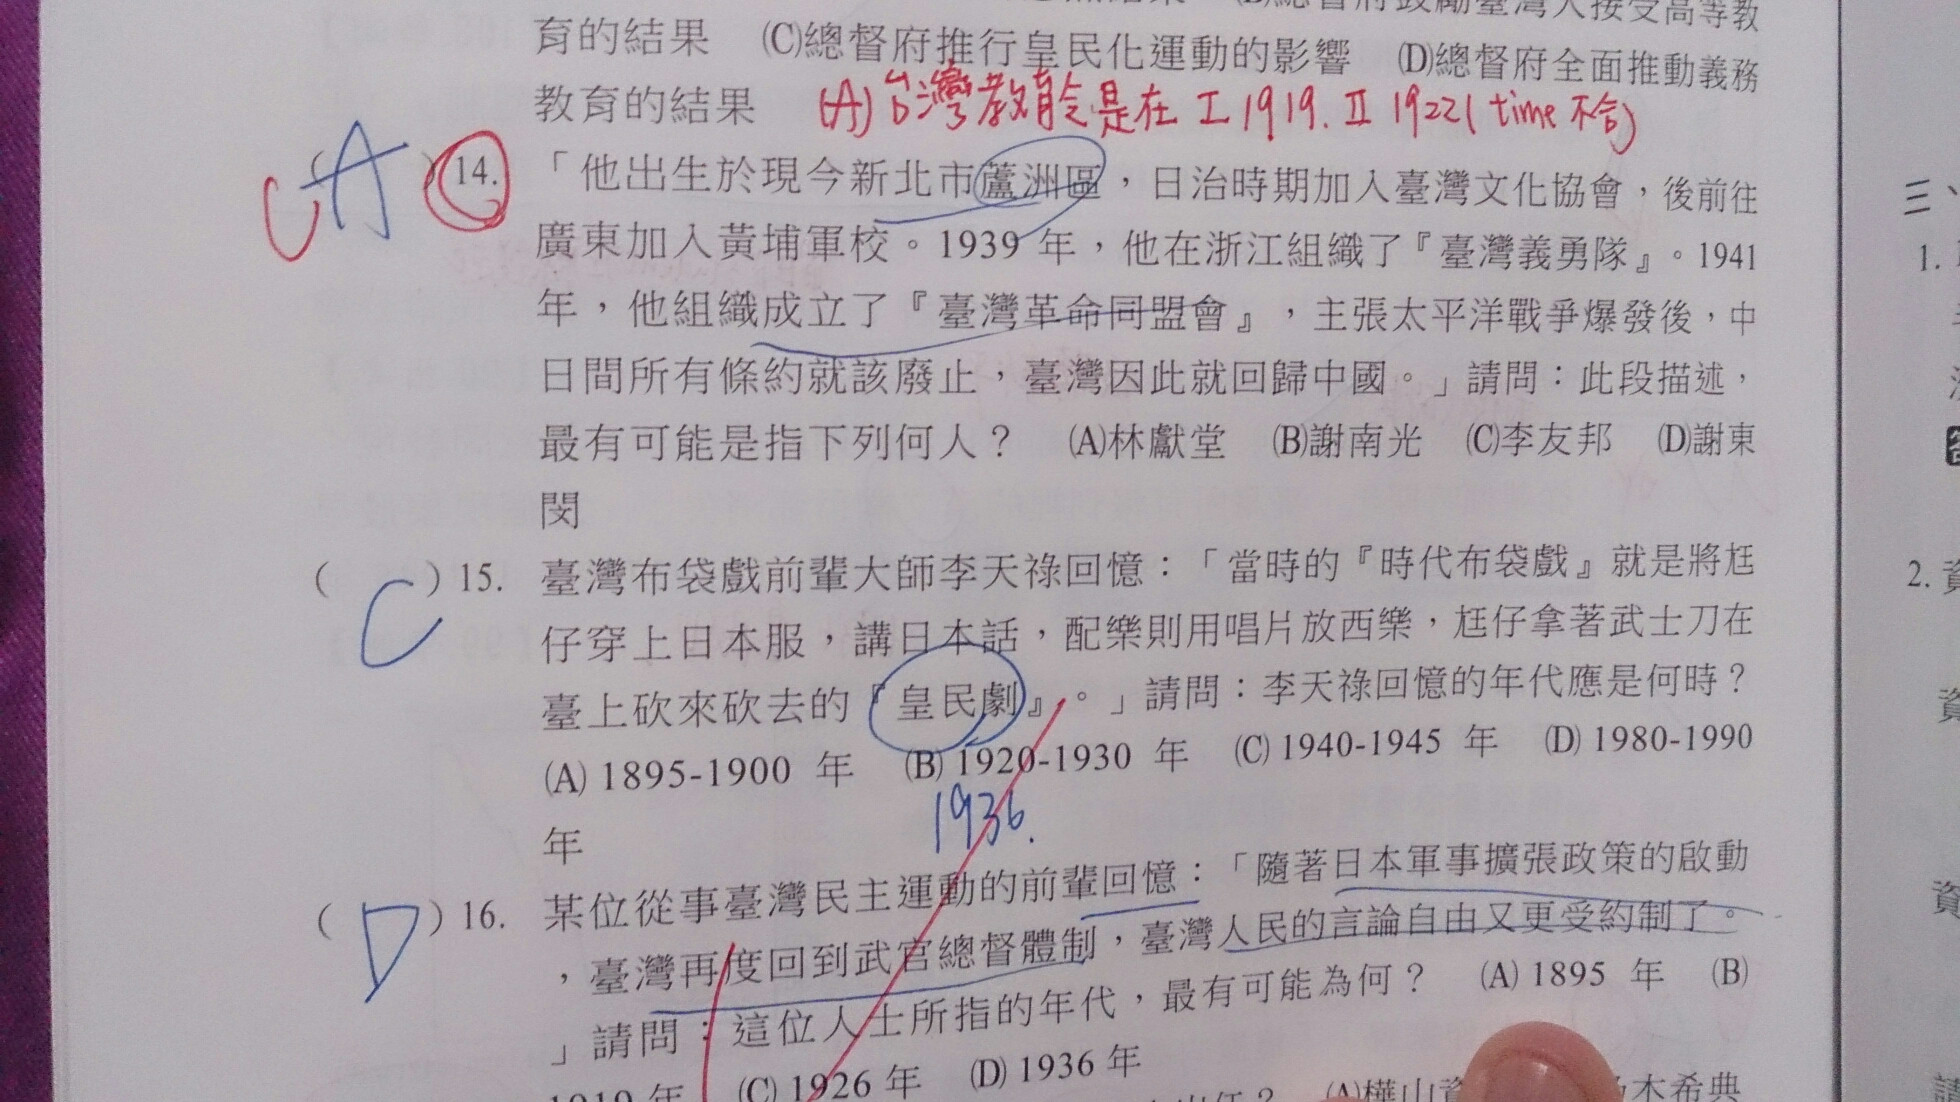 育的結果 (C)總督府推行皇民化運動的影響 (D)總督府全面推動義務
教育的結果 (A)台灣教育令是在 I 1919. II 1922(time不合)
C A ( ) 14. 「他出生於現今新北市蘆洲區，日治時期加入臺灣文化協會，後前往
廣東加入黃埔軍校。1939 年，他在浙江組織了『臺灣義勇隊』。1941
年，他組織成立了『臺灣革命同盟會』，主張太平洋戰爭爆發後，中
日間所有條約就該廢止，臺灣因此就回歸中國。」請問：此段描述，
最有可能是指下列何人？ (A)林獻堂 (B)謝南光 (C)李友邦 (D)謝東
閔
( C ) 15. 臺灣布袋戲前輩大師李天祿回憶：「當時的『時代布袋戲』就是將尪
仔穿上日本服，講日本話，配樂則用唱片放西樂，尪仔拿著武士刀在
臺上砍來砍去的『皇民劇』。」請問：李天祿回憶的年代應是何時？
(A) 1895-1900 年 (B) 1920-1930 年 (C) 1940-1945 年 (D) 1980-1990
年
1936.
( D ) 16. 某位從事臺灣民主運動的前輩回憶：「隨著日本軍事擴張政策的啟動
，臺灣再度回到武官總督體制，臺灣人民的言論自由又更受約制了。
」請問：這位人士所指的年代，最有可能為何？ (A) 1895 年 (B)
1919 年 (C) 1926 年 (D) 1936 年
(A)樺山資 木希典
三、
1.
2. 資
資
資